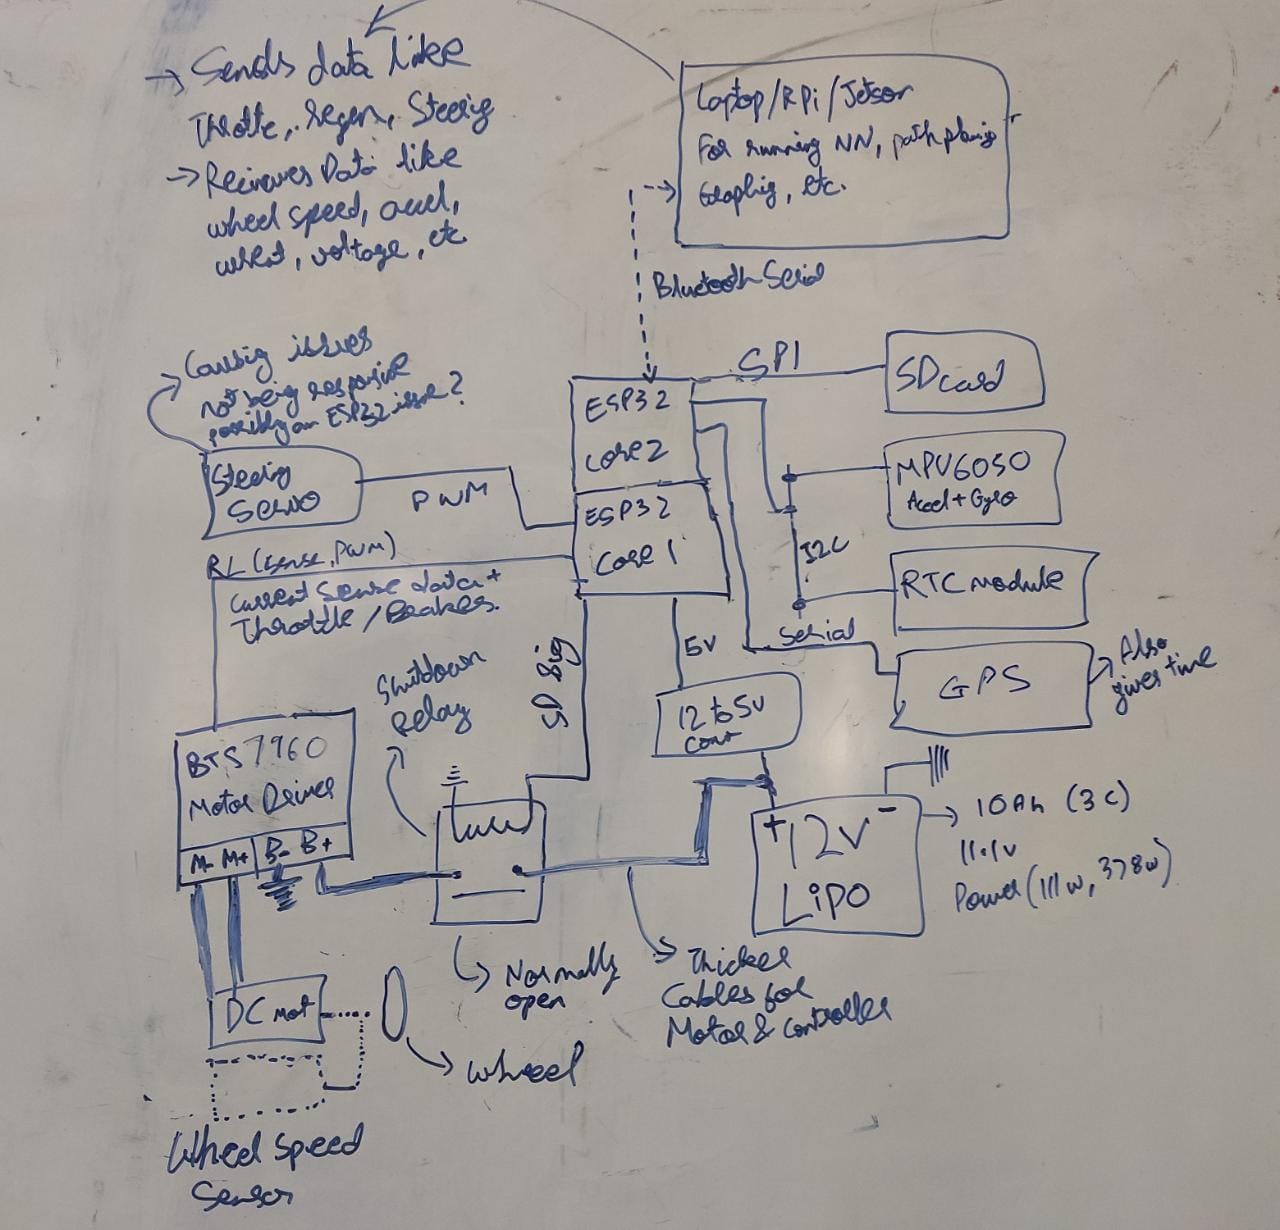 → Sends data like
Throttle, regen, Steering
→ Recieves Data like
wheel speed, accel,
current, voltage, etc
Laptop/RPi/Jetson
For running NN, path planing
Graphing, etc.
Bluetooth Serial
Causing issues
not being responsive
possibly an ESP32 issue?
Steering
Servo
PWM
ESP32
Core 2
ESP32
Core 1
SPI
SD card
MPU6050
Accel + Gyro
I2C
RTC module
Serial
GPS
Also
gives time
RL (sense, PWM)
Current Sense data +
Throttle / Brakes.
SD Sig
5V
12 to 5v
conv
Shutdown
Relay
BTS7960
Motor Driver
M- M+ B- B+
+ 12V -
LiPO
10Ah (3C)
11.1v
Power (111w, 378w)
Normally
open
Thicker
Cables for
Motor & Controller
DC mot
wheel
Wheel Speed
Sensor